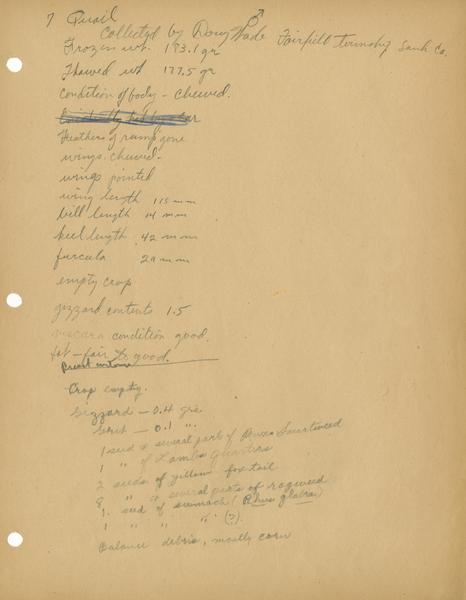 7 Quail ♂
Collected by Doug Wade Fairfield township Sauk Co.
Frozen wt. 193.1 gr
Thawed wt 177.5 gr
Condition of body - chewed.
Feathers of rump gone
wings chewed.
wings pointed
wing length 115 mm
bill length 14 mm
keel length 42 mm
furcula mm
empty crop
gizzard contents 1.5
viscera condition good.
fat - fair to good.
Breast
Crop empty.
Gizzard - 0.4 grs
Grit - 0.1 "
1 seed & several parts of Smartweed
1 " of Lambs Quarters
2 seeds of yellow foxtail
8 " & several parts of ragweed
1 seed of sumach (Rhus glabra)
1 " " " (?)
Balance debris, mostly corn